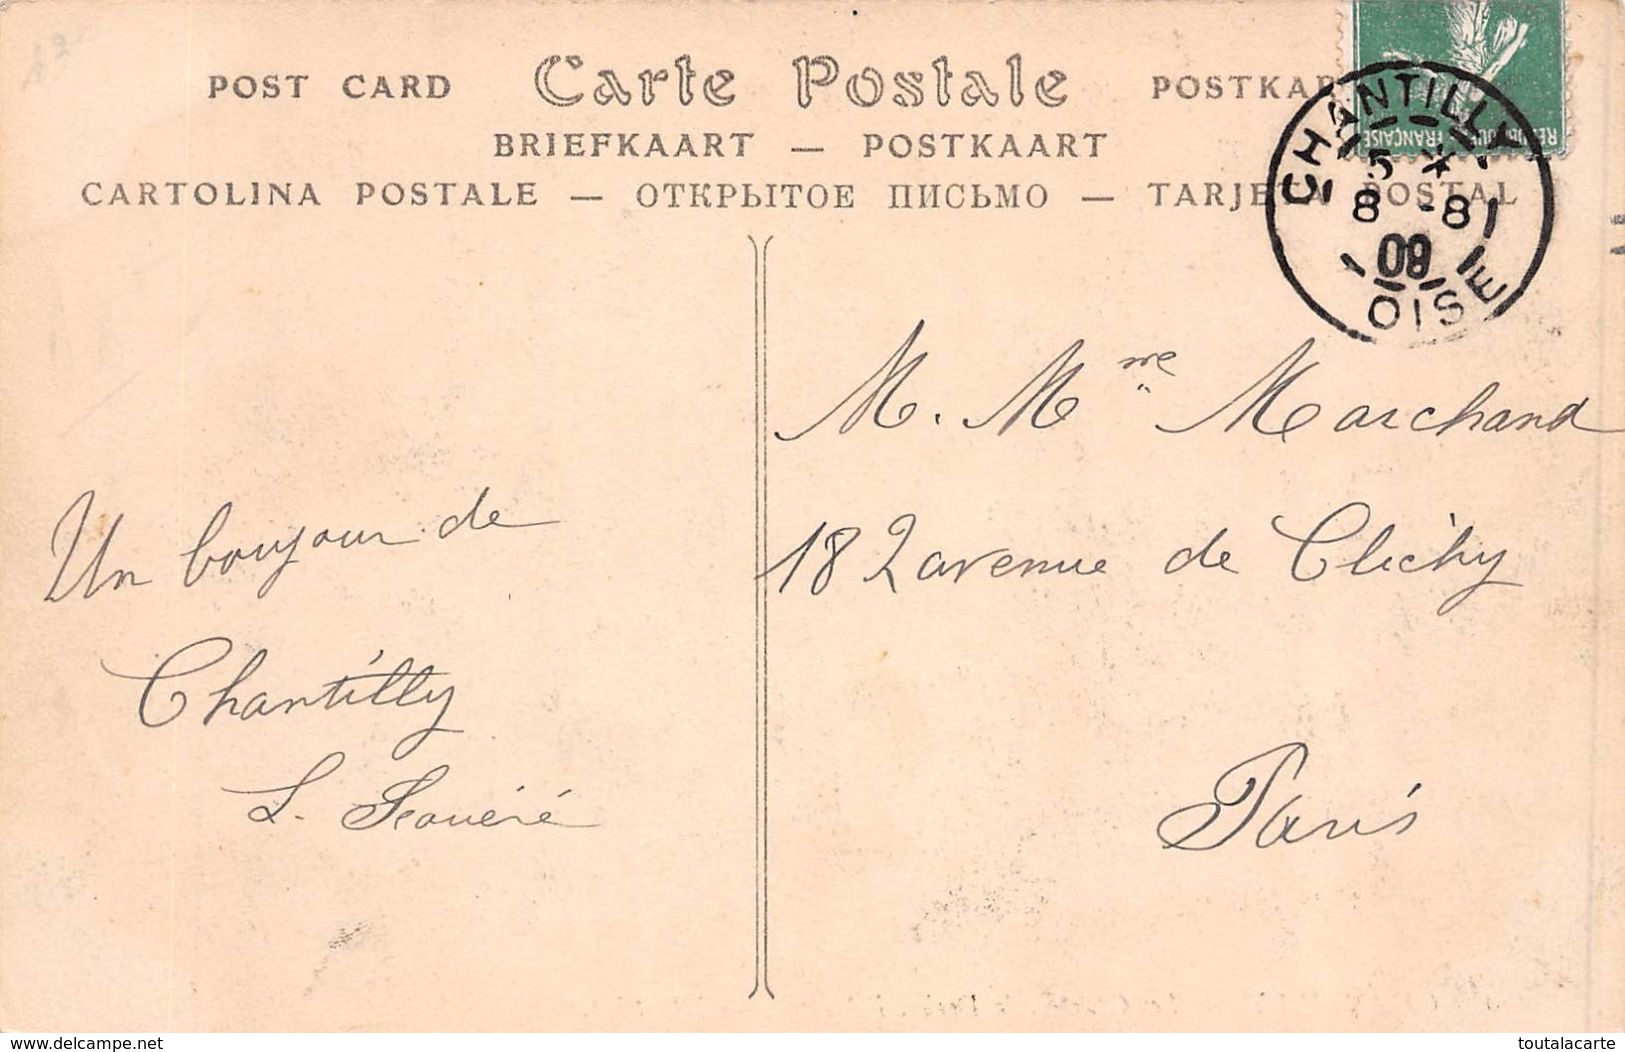 POST CARD Carte Postale POSTKAR
BRIEFKAART — POSTKAART
CARTOLINA POSTALE — ОТКРЫТОЕ ПИСЬМО — TARJETA POSTAL
FRANÇAISE
CHANTILLY
5 *
8 -8
09
OISE
M. Mme Marchand
182 avenue de Clichy
Paris
Un bonjour de
Chantilly
L.
delcampe.net
toutalacarte